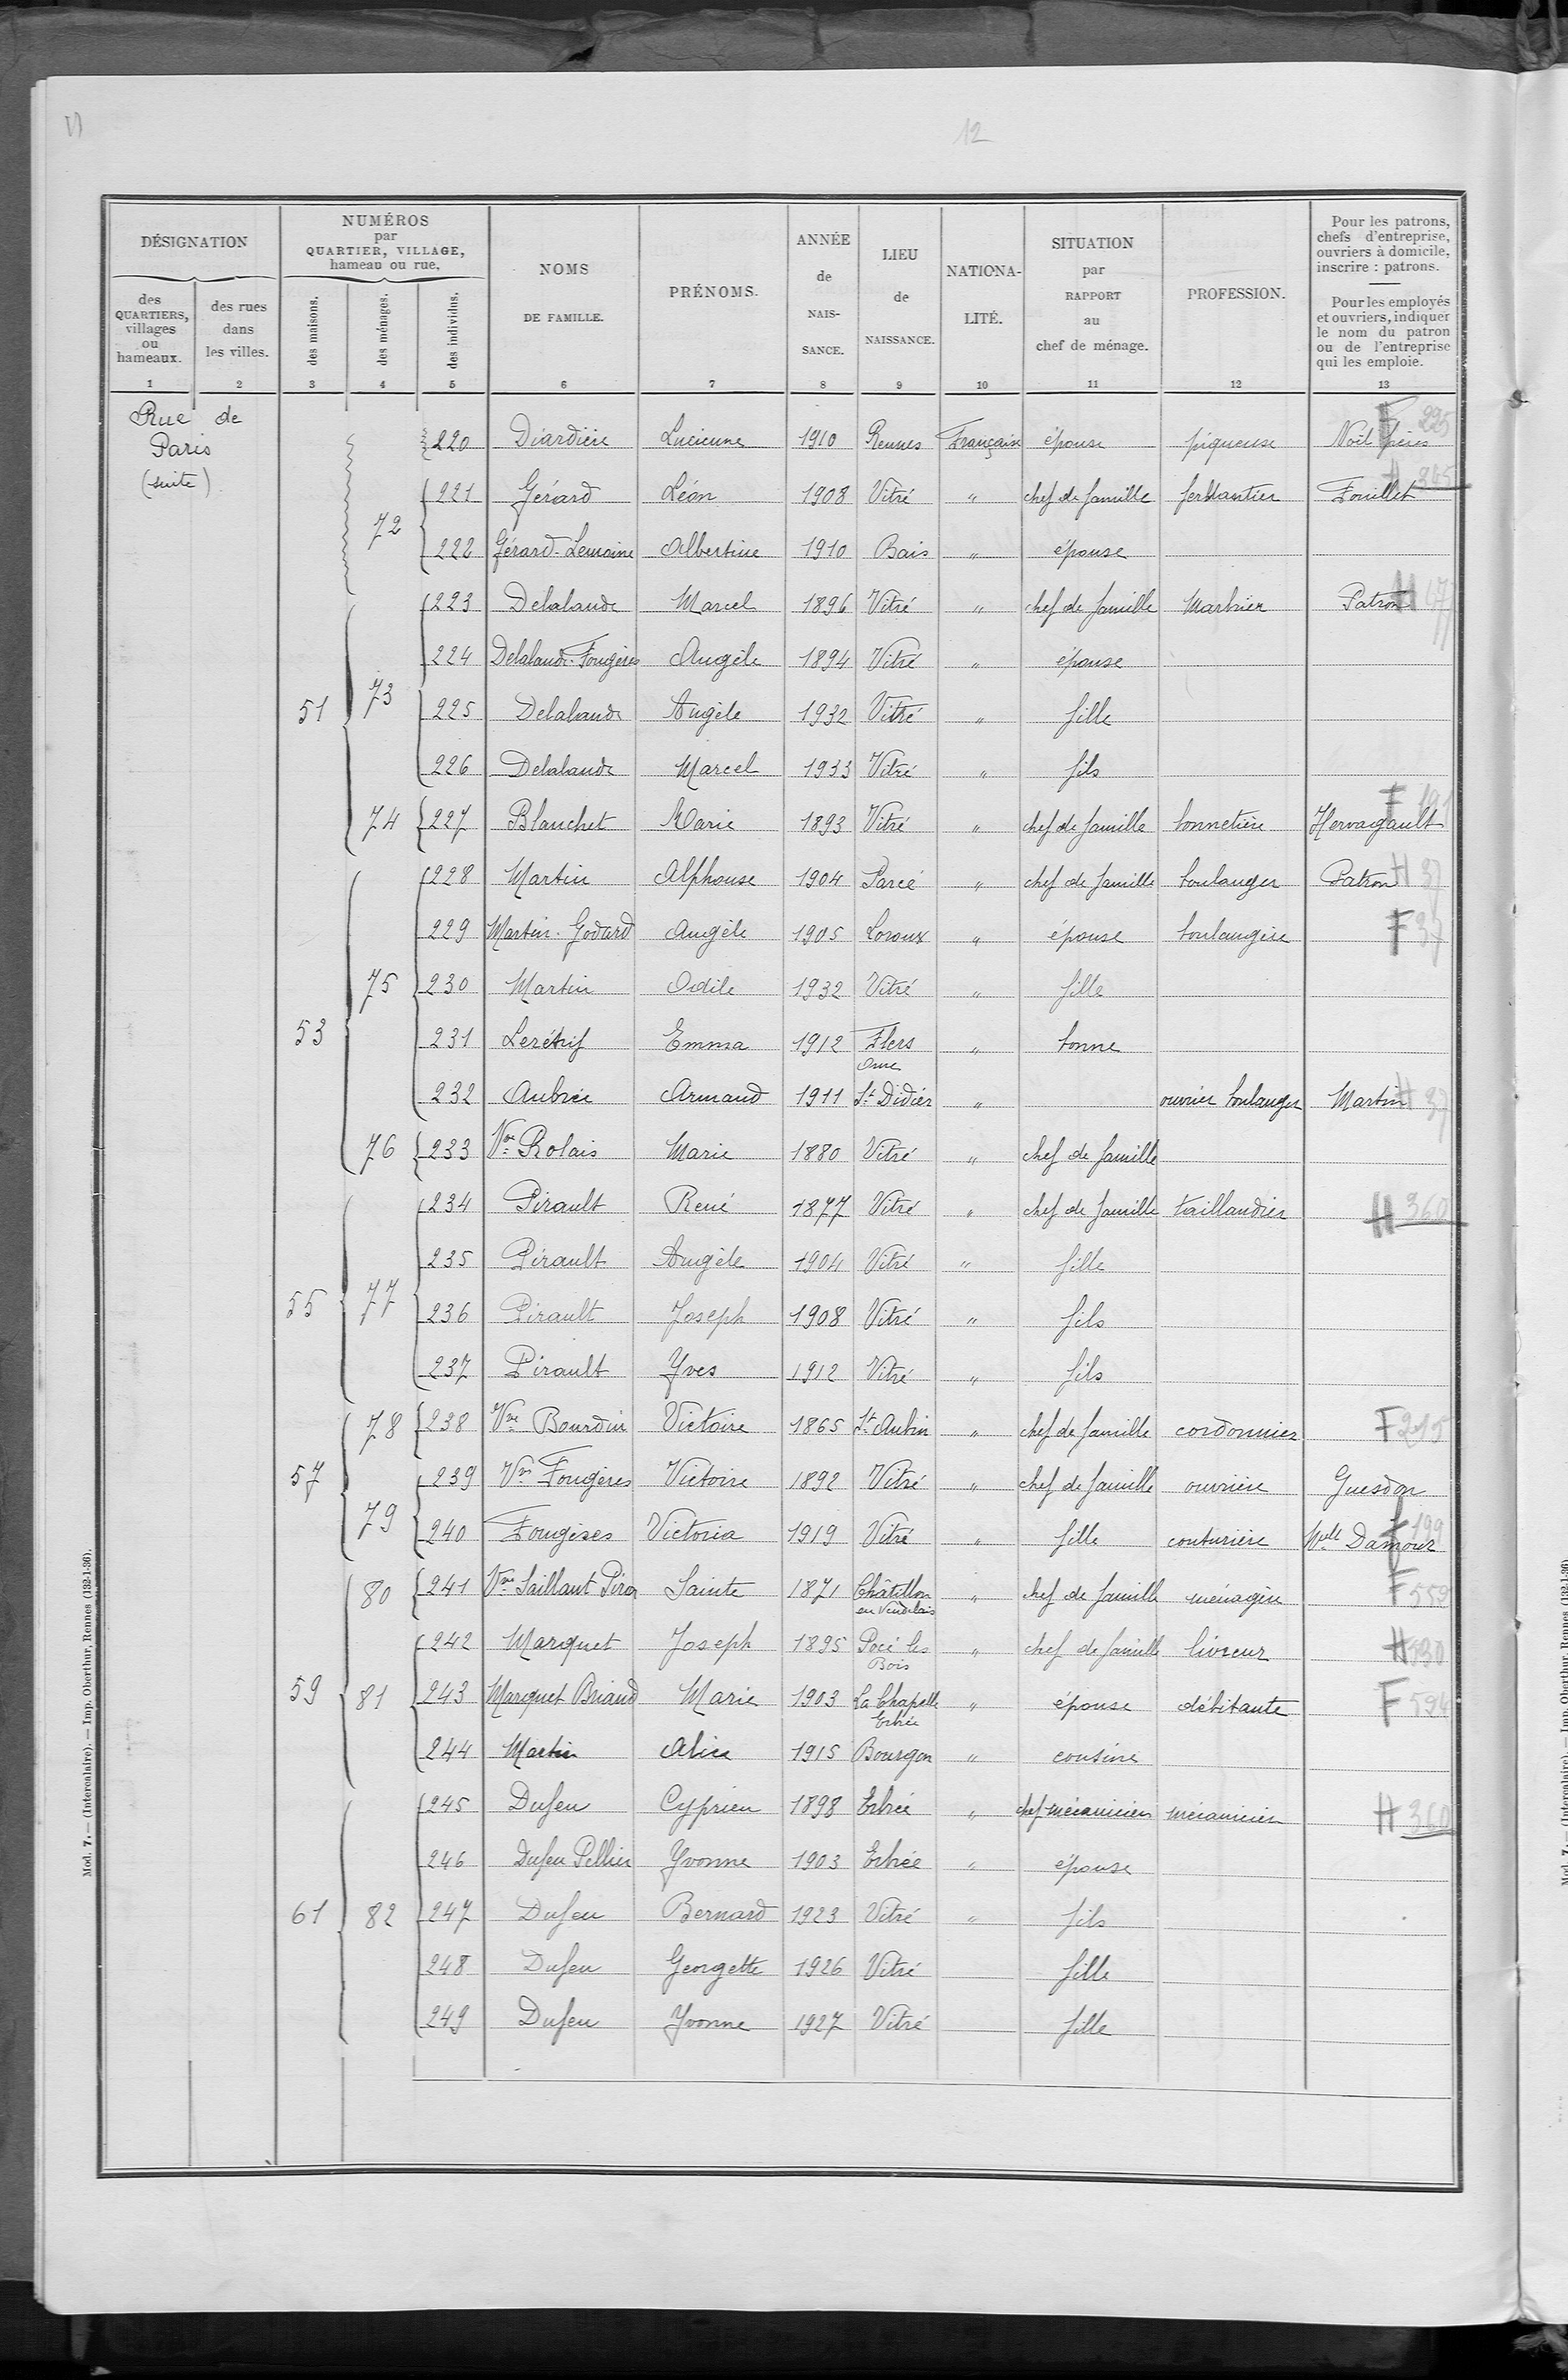 12
DÉSIGNATION
des QUARTIERS, villages ou hameaux.
des rues dans les villes.
NUMÉROS par QUARTIER, VILLAGE, hameau ou rue,
des maisons.
des ménages.
des individus.
NOMS DE FAMILLE.
PRÉNOMS.
ANNÉE de NAIS-SANCE.
LIEU de NAISSANCE.
NATIONA-LITÉ.
SITUATION par RAPPORT au chef de ménage.
PROFESSION.
Pour les patrons, chefs d'entreprise, ouvriers à domicile, inscrire : patrons.
Pour les employés et ouvriers, indiquer le nom du patron ou de l'entreprise qui les emploie.
1 2 3 4 5 6 7 8 9 10 11 12 13
Rue de Paris (suite)
220 Diardière Lucienne 1910 Rennes Française épouse piqueuse Noël frères F 225
72 221 Gérard Léon 1908 Vitré " chef de famille ferblantier Fouillet
222 Gérard-Lemoine Albertine 1910 Bais " épouse
51 73 223 Delalande Marcel 1896 Vitré " chef de famille Marbrier Patron H 47
224 Delalande-Fougères Angèle 1894 Vitré " épouse
225 Delalande Angèle 1932 Vitré " fille
226 Delalande Marcel 1933 Vitré " fils
74 227 Blanchet Marie 1893 Vitré " chef de famille bonnetière Hervagault F 191
53 75 228 Martin Alphonse 1904 Parcé " chef de famille boulanger Patron H 37
229 Martin-Godard Angèle 1905 Loroux " épouse boulangère F 37
230 Martin Odile 1932 Vitré " fille
231 Lerétrif Emma 1912 Flers Orne " bonne
232 Aubrée Armand 1911 St Didier " ouvrier boulanger Martin H 37
76 233 Vve Rolais Marie 1880 Vitré " chef de famille
55 77 234 Pirault René 1877 Vitré " chef de famille taillandier H 360
235 Pirault Angèle 1904 Vitré " fille
236 Pirault Joseph 1908 Vitré " fils
237 Pirault Yves 1912 Vitré " fils
57 78 238 Vve Bourdin Victoire 1865 St Aubin " chef de famille cordonnier F 215
79 239 Vve Fougères Victoire 1892 Vitré " chef de famille ouvrière Guesdon
240 Fougères Victoria 1919 Vitré " fille couturière Melle Damour F 199
59 80 241 Vve Saillant Piron Sainte 1871 Châtillon en Vendelais " chef de famille ménagère F 559
81 242 Marquet Joseph 1895 Pocé les Bois " chef de famille livreur H 530
243 Marquet Briand Marie 1903 La Chapelle Erbrée " épouse débitante F 594
244 Martin Alice 1915 Bourgon " cousine
61 82 245 Dufeu Cyprien 1898 Erbrée " chef mécanicien mécanicien H 360
246 Dufeu Pellier Yvonne 1903 Erbrée " épouse
247 Dufeu Bernard 1923 Vitré " fils
248 Dufeu Georgette 1926 Vitré fille
249 Dufeu Yvonne 1927 Vitré fille
Mod. 7. — (Intercalaire). — Imp. Oberthur, Rennes (132-1-36).
Mod. 7. — (Intercalaire). — Imp. Oberthur, Rennes (132-1-36)